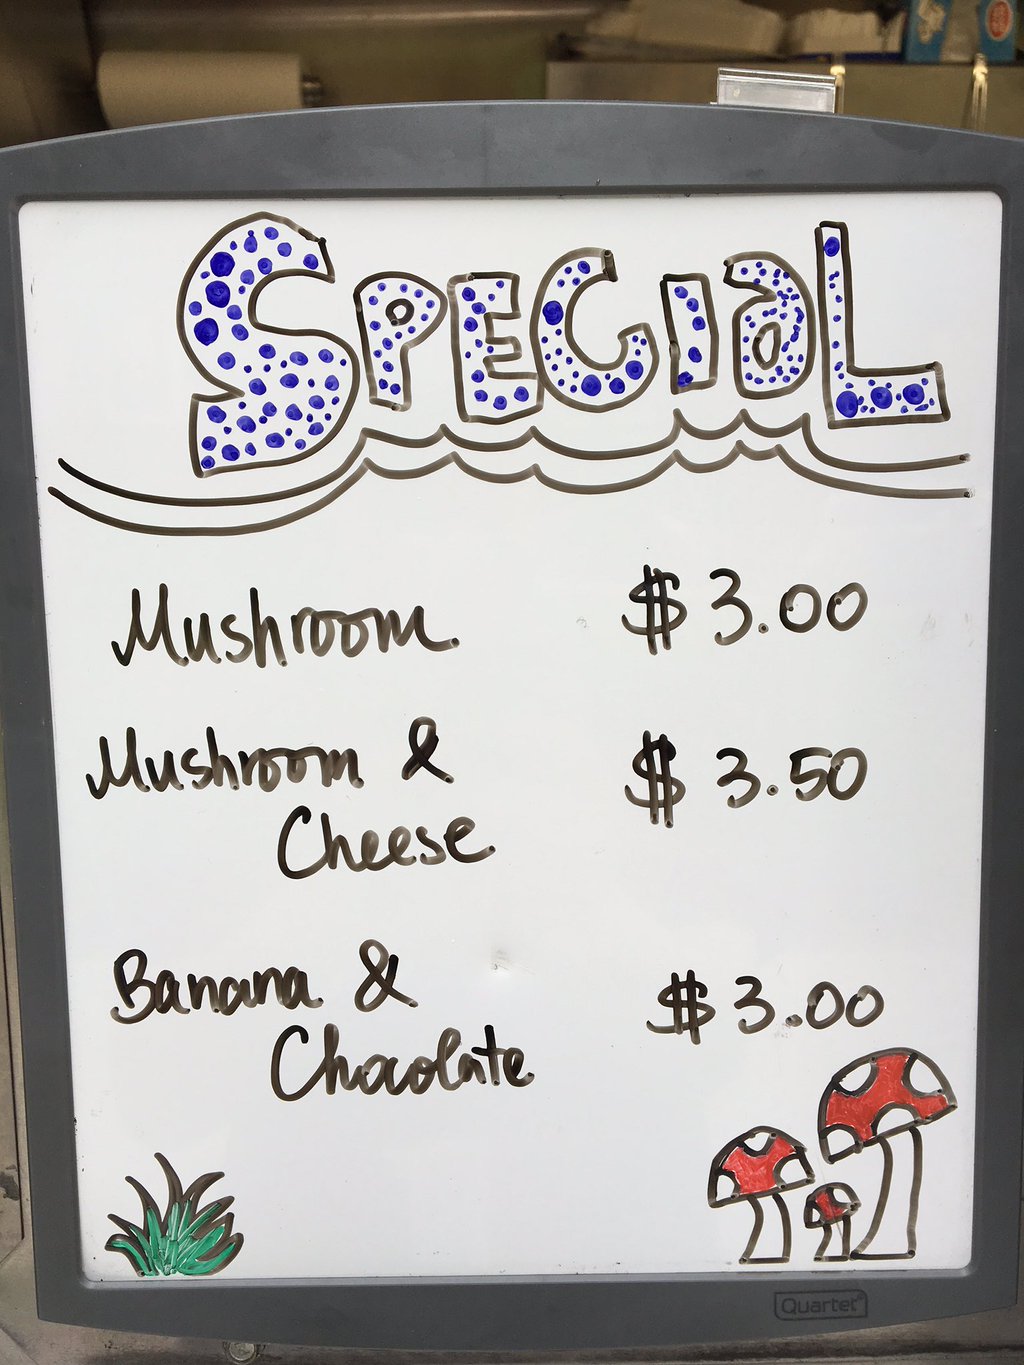 SPECIaL
Mushroom $3.00
Mushroom & $3.50
Cheese
Banana & $3.00
Chocolate
Quartet